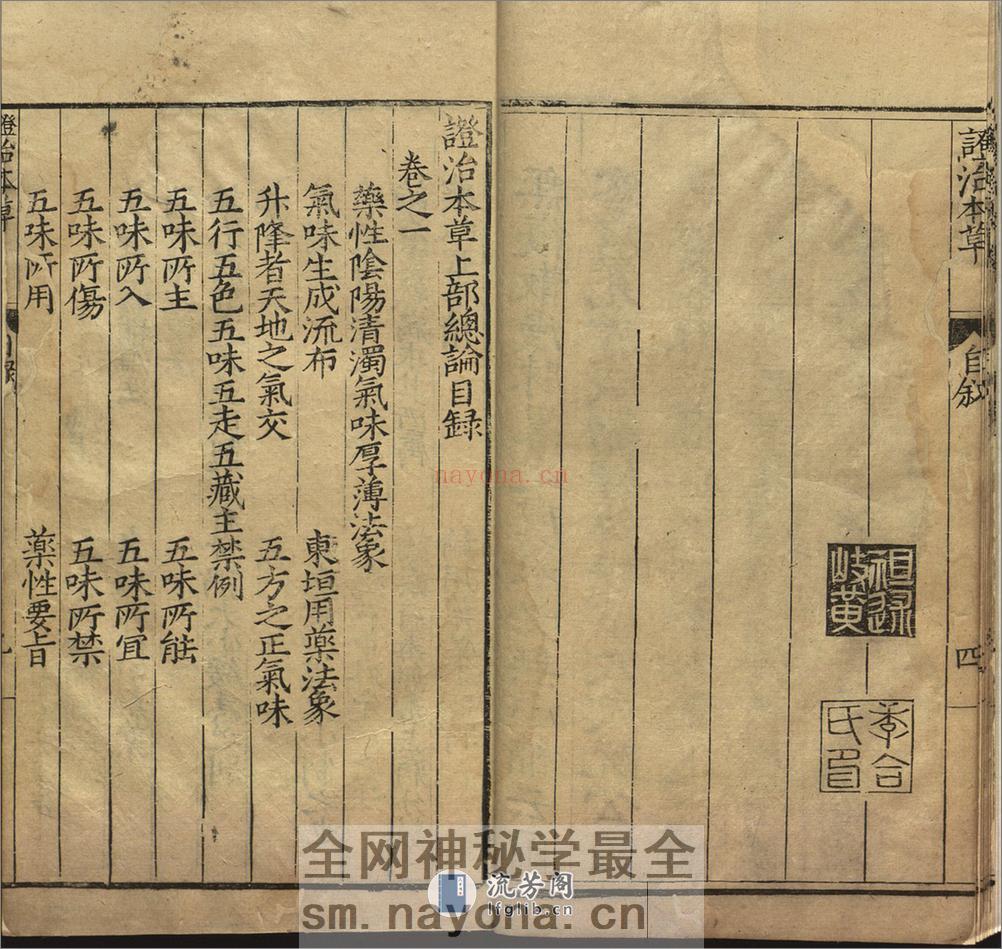 證治本草
自叙
四
岐黄
證治本草上部總論目録
卷之一
藥性陰陽清濁氣味厚薄法象
氣味生成流布 東垣用藥法象
升降者天地之氣交 五方之正氣味
五行五色五味五走五藏主禁例
五味所主 五味所能
五味所入 五味所宜
五味所傷 五味所禁
五味所用 藥性要旨
證治本草
nayona.cn
全网神秘学最全
流芳阁
lfglib.cn
sm.nayona.cn